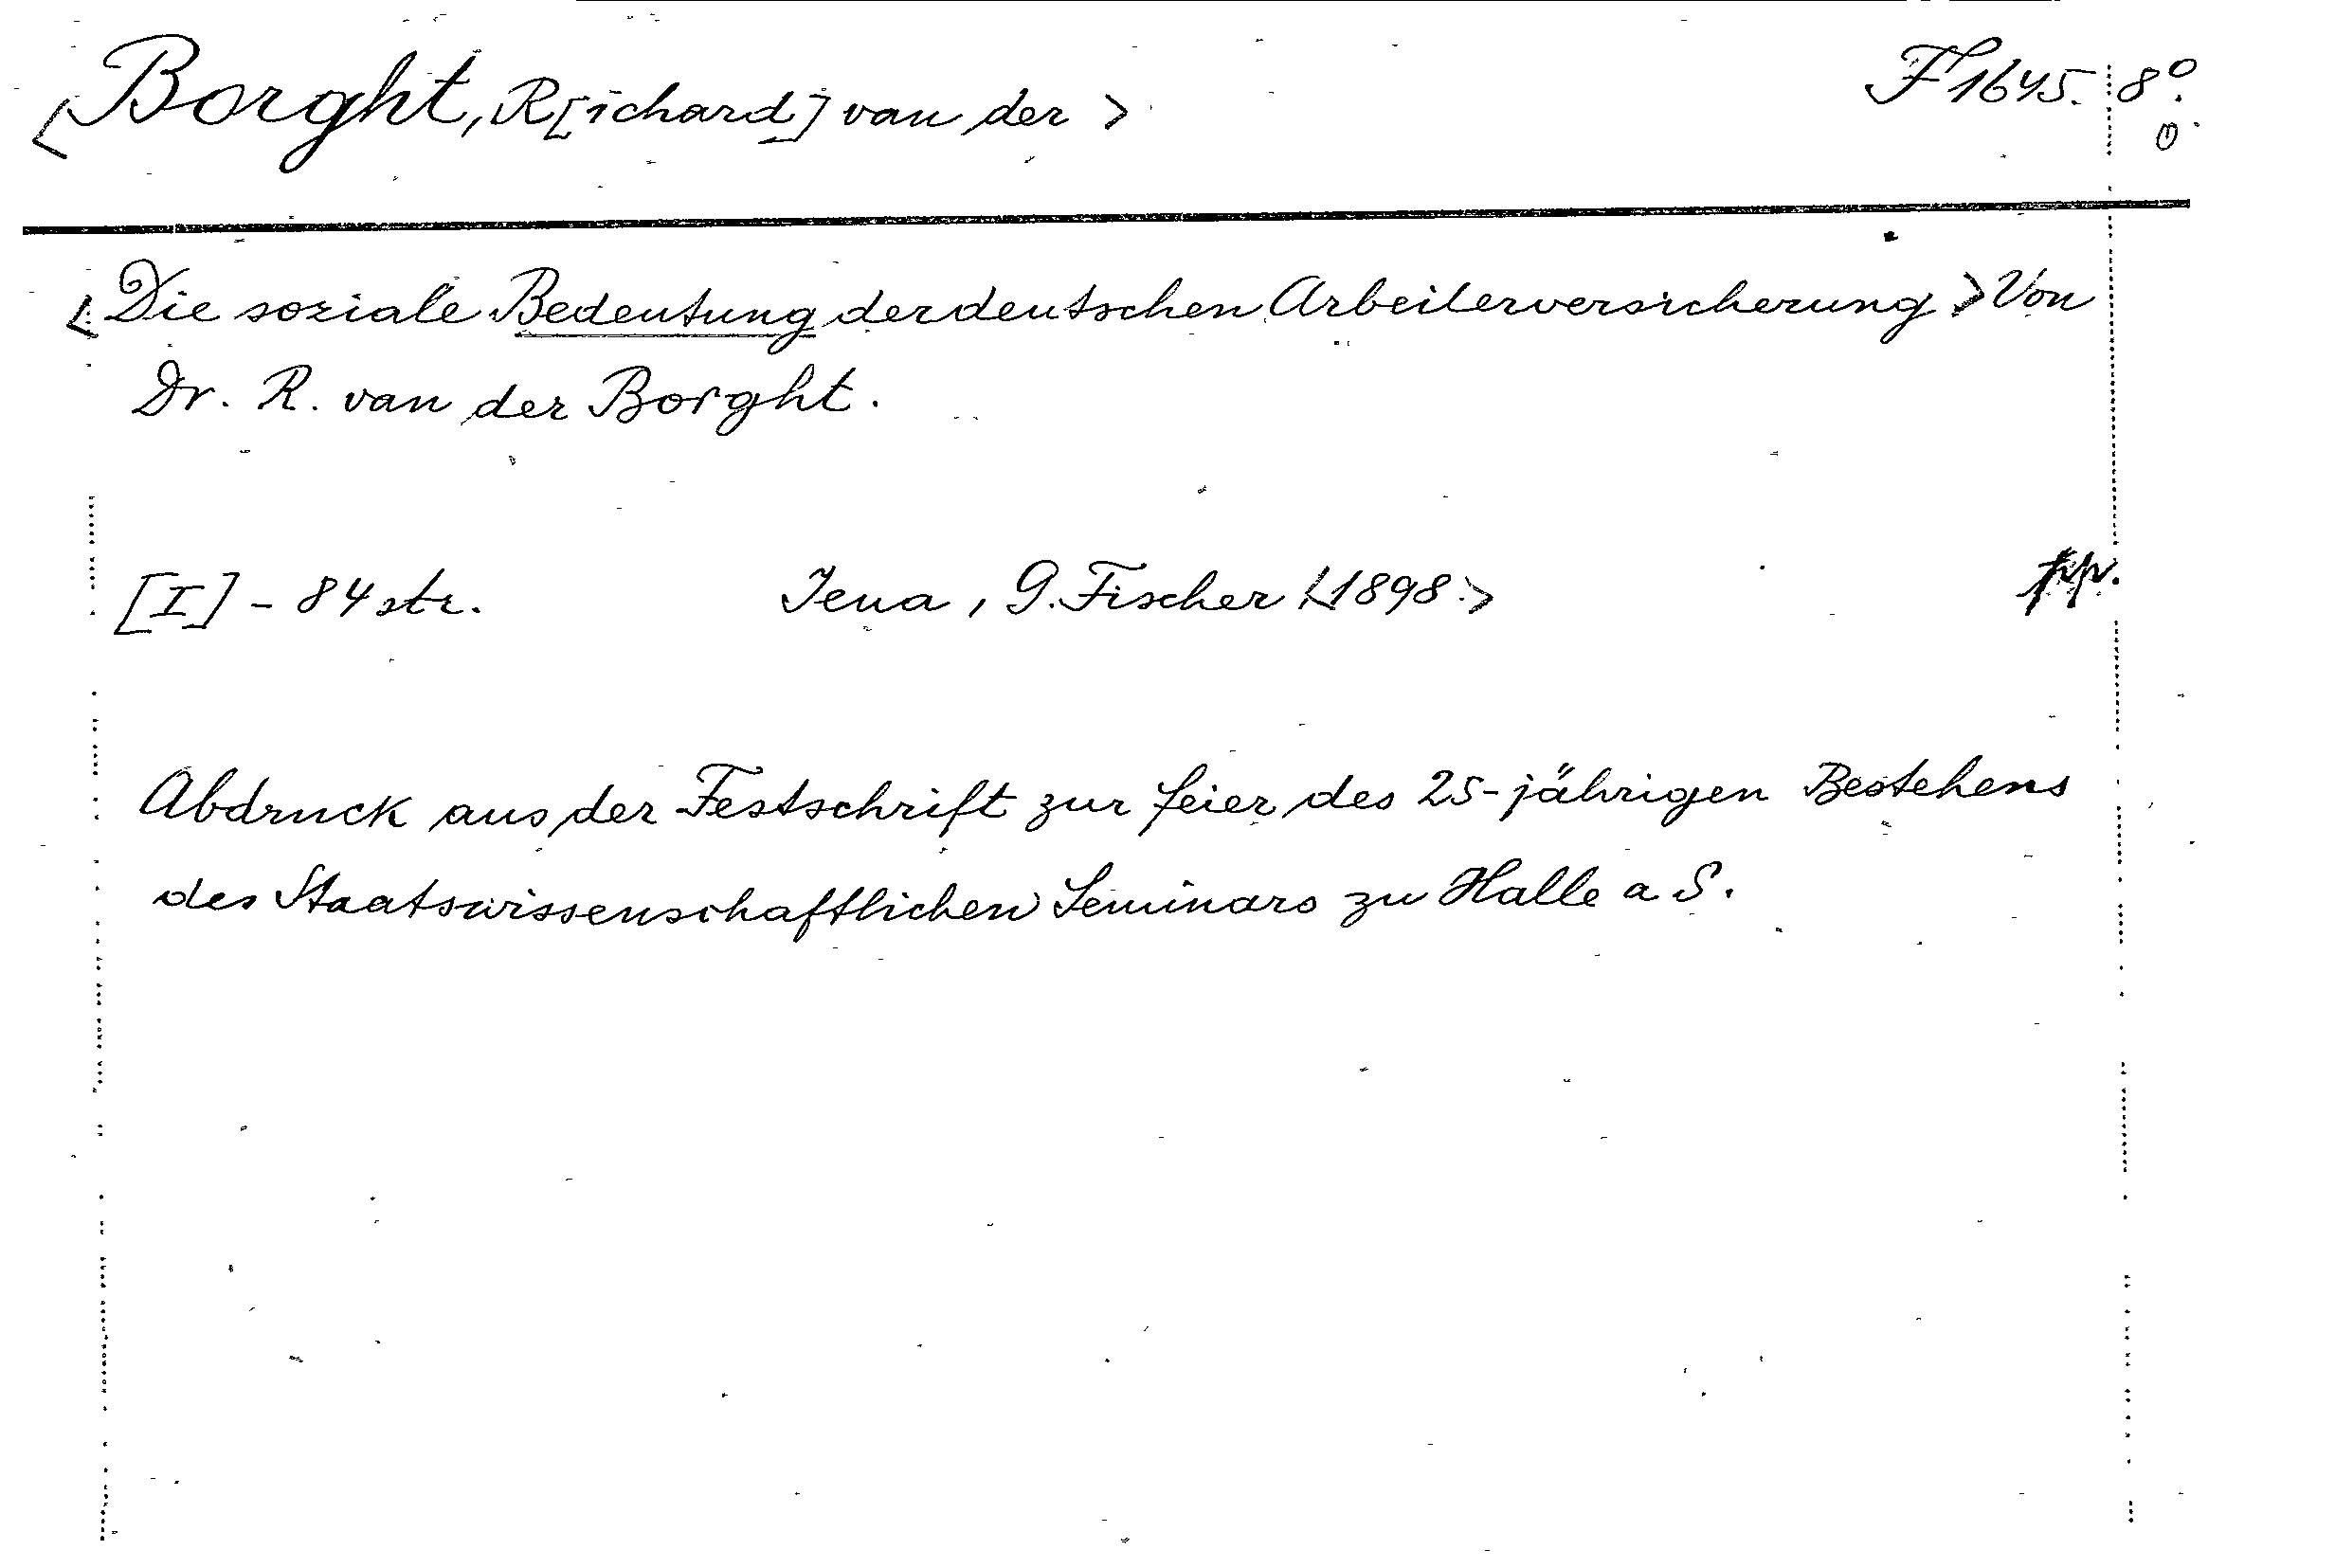 <Borght, R[ichard] van der > F 1645. 8º.
<Die soziale Bedeutung der deutschen Arbeiterversicherung> Von
Dr. R. van der Borght.
[I] - 84 str. Jena, G. Fischer <1898> pp.
Abdruck aus der Festschrift zur Feier des 25-jährigen Bestehens
des Staatswissenschaftlichen Seminars zu Halle a S.